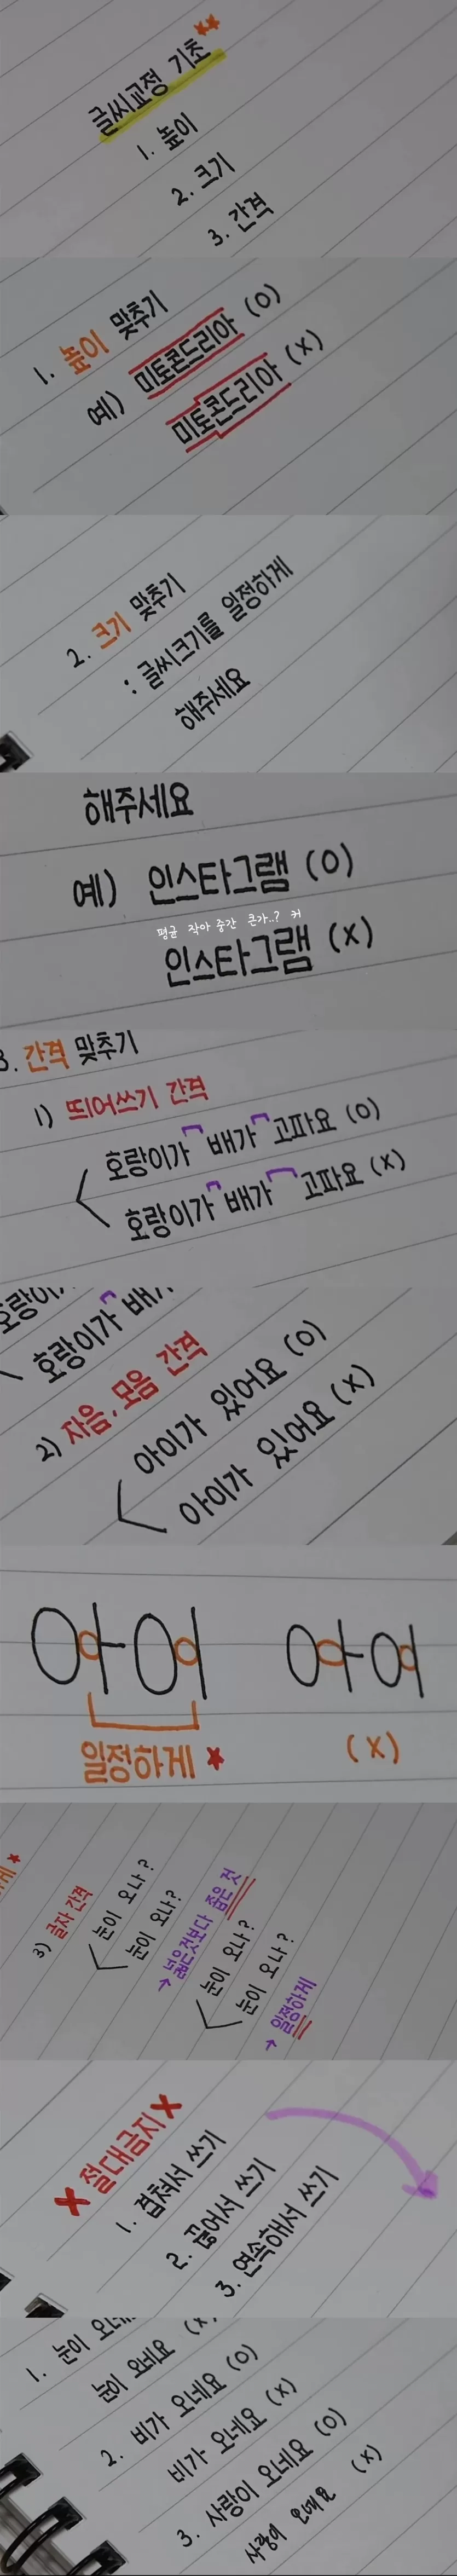 글씨교정 기초
1. 높이
2. 크기
3. 간격
1. 높이 맞추기
예) 미토콘드리아 (O)
미토콘드리아 (X)
2. 크기 맞추기
: 글씨크기를 일정하게
해주세요
해주세요
예) 인스타그램 (O)
평균 작아 중간 큰가..? 커
인스타그램 (X)
3. 간격 맞추기
1) 띄어쓰기 간격
호랑이가 배가 고파요 (O)
호랑이가 배가 고파요 (X)
호랑이가 배가
2) 자음, 모음 간격
아이가 있어요 (O)
아이가 있어요 (X)
아어 아어
일정하게 (X)
3) 글자 간격
눈이 오나?
눈이 오나?
↑ 넓은것보다 좁은 것
눈이 오나?
눈이 오나?
↑ 일정하게
X 절대금지 X
1. 겹쳐서 쓰기
2. 끊어서 쓰기
3. 연속해서 쓰기
1. 눈이 오네
눈이 오네요 (X)
2. 비가 오네요 (O)
비가 오네요 (X)
3. 사랑이 오네요 (O)
사랑이 오네요 (X)